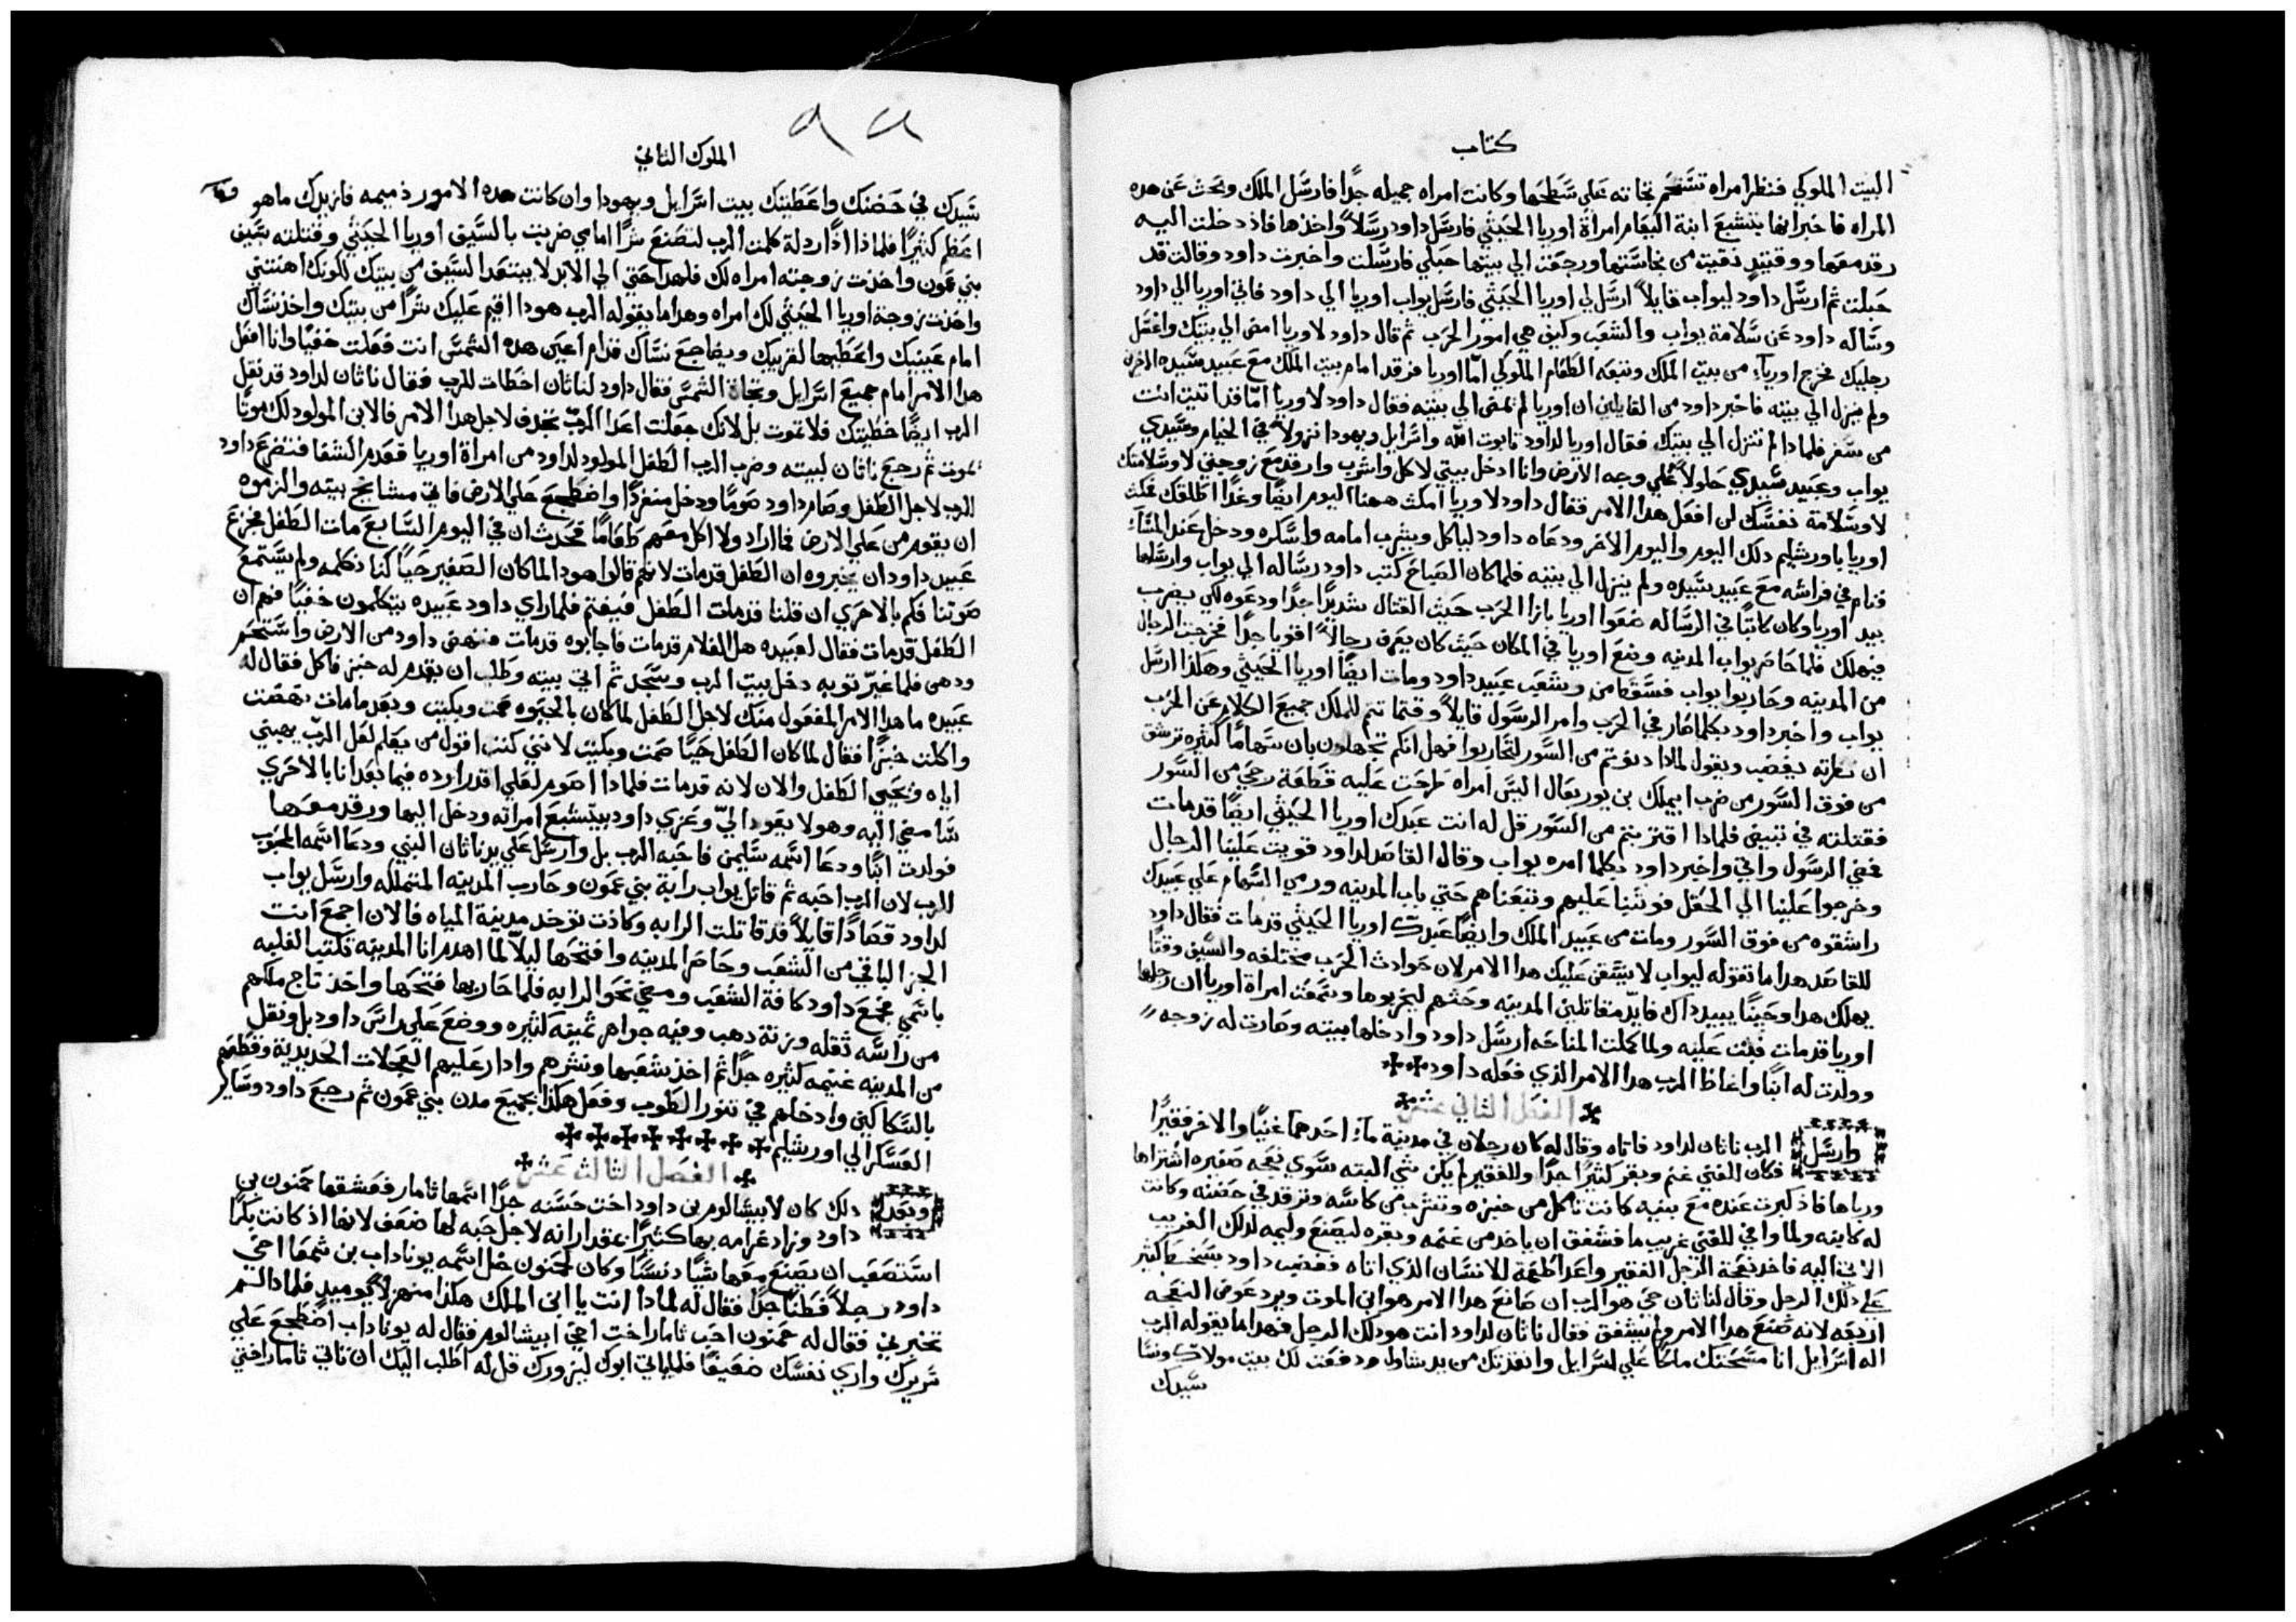 كتاب
البيت الملوكي فنظر امراه تستحم تجاته على سطحها وكانت امراه جميله جدًا فارسل الملك وبحث عن هده
المراه فاخبر انها بتشبع ابنة اليعام امراة اوريا الحيثي فارسل داود رسلاً واخذها فاذ دخلت اليه
رقد معها ووقتيدٍ نقيت من نجاستها ورجعت الي بيتها حبلي فارسلت واخبرت داود وقالت قد
حبلت ثم ارسل داود ليواب قايلاً ارسل لي اوريا الحيثي فارسل يواب اوريا الي داود فاتي اوريا الي داود
وساله داود عن سلامة يواب والشعب وكيف هي امور الحرب ثم قال داود لاوريا امض الي بيتك واغسل
رجليك فخرج اوريا من بيت الملك وتبعه الطعام الملوكي امّا اوريا فرقد امام بيت الملك مع عبيد سيده الاخرين
ولم ينزل الي بيته فاخبر داود من القايلين ان اوريا لم يمض الي بيته فقال داود لاوريا امّا قد اتيت انت
من سفر فلمادا لم تنزل الي بيتك فقال اوريا لداود تابوت الله واسرايل ويهودا نزولاً في الخيام وسيدي
يواب وعبيد سيدي حلولاً علي وجه الارض وانا ادخل بيتي لاكل واشرب وارقد مع زوجتي لا وسلامتك
لا وسلامة نفسك لن افعل هدا الامر فقال داود لاوريا امكث ههنا اليوم ايضًا وغدًا اطلقك فمكث
اوريا باورشليم دلك اليوم واليوم الاخر ودعاه داود لياكل ويشرب امامه واسكره ودخل عند المسآء
فنام في فراشه مع عبيد سيده ولم ينزل الي بيته فلما كان الصباح كتب داود رساله الي يواب وارسلها
بيد اوريا وكان كاتبًا في الرساله ضعوا اوريا بازا الحرب حيث القتال شديدًا جدًا ودعوه لكي يضرب
فيهلك فلما حاصر يواب المدينه وضع اوريا في المكان حيث كان يعرف رجالاً اقويا جدًا فخرجت الرجال
من المدينه وحاربوا يواب فسقط من وشعب عبيد داود ومات ايضًا اوريا الحيثي وهكذا ارسل
يواب واخبر داود بكلما صار في الحرب وامر الرسول قايلاً وقتما تتم للملك جميع الكلام عن الحرب
ان نظرته يغضب ويقول لمادا دنوتم من السور لتحاربوا فهل انكم تجهلون بان سهامًا كثيره ترشق
من فوق السور من ضرب ابيملك بن يوربعال اليس امراه طرحت عليه قطعة رحي من السور
فقتلته في تيبيص فلمادا اقتربتم من السور قل له انت عبدك اوريا الحيثي ايضًا قد مات
فمضي الرسول واتي واخبر داود بكلما امره يواب وقال القاصد لداود قويت علينا الرجال
وخرجوا علينا الي الحقل فوثبنا عليهم وتبعناهم حتي باب المدينه ورمي السهام علي عبيدك
راشقوه من فوق السور ومات من عبيد الملك وايضًا عبدك اوريا الحيثي قد مات فقال داود
للقاصد هدا ما تقوله ليواب لا يشقن عليك هدا الامر لان حوادث الحرب مختلفه والسيف وقتًا
يهلك هدا وحينًا يبيد داك فايّد مقاتلين المدينه وحثهم ليخربوها وسمعت امراة اوريا ان رجلها
اوريا قد مات فبكت عليه ولما كملت المناحه ارسل داود وادخلها بيته وصارت له زوجه
وولدت له ابنًا واغاظ الرب هدا الامر الذي فعله داود
الفصل الثاني عشر
وارسل الرب ناثان لداود فاتاه وقال له كان رجلان في مدينة مآ احدهما غنيًا والاخر فقيرًا
فكان للغني غنم وبقر كثيرًا جدًا وللفقير لم يكن شي البته سوي نعجه صغيره اشتراها
ورباها فاذ كبرت عنده مع بنيه كانت تاكل من خبزه وتشرب من كاسه وترقد في حضنه وكانت
له كابنه ولما وافي للغني غريب ما فشفق ان ياخد من غنمه وبقره ليصنع وليمه لدلك الغريب
الاتي اليه فاخد نعجة الرجل الفقير واعد اطعمة للانسان الذي اتاه فغضب داود بسخط كثير
علي دلك الرجل وقال لناثان حي هو الرب ان صانع هدا الامر هو ابن الموت ويرد عوض النعجه
اربعه لانه صنع هدا الامر ولم يشفق فقال ناثان لداود انت هو دلك الرجل فهدا ما يقوله الرب
اله اسرايل انا مسحتك ملكًا علي اسرايل وانقذتك من يد شاول ودفعت لك بيت مولاك ونسا
سيدك
الملوك الثاني
سيدك في حضنك واعطيتك بيت اسرايل ويهودا وان كانت هده الامور ذميمه فازيدك ما هو
اعظم كثيرًا فلماذا اذًا ردلة كلمت الرب لتصنع شرًا امامي ضربت بالسيف اوريا الحيثي وقتلته بسيف
بني عمون واخذت زوجته امراه لك فلهدا حتي الي الابد لا يبتعد السيف من بيتك لكونك اهنتني
واخذت زوجة اوريا الحيثي لك امراه وهدا ما يقوله الرب هودا اقيم عليك شرًا من بيتك واخذ نساك
امام عينيك واعطيها لقريبك ويضاجع نساك قدام اعين هده الشمس انت فعلت خفيًا وانا افعل
هدا الامر امام جميع اسرايل وتجاة الشمس فقال داود لناثان اخطات للرب فقال ناثان لداود قد نقل
الرب ايضًا خطيتك فلا تموت بل لانك جعلت اعدا الربّ تجدف لاجل هدا الامر فالابن المولود لك موتًا
يموت ثم رجع ناثان لبيته وضرب الرب الطفل المولود لداود من امراة اوريا فعدم الشفا فتضرع داود
للرب لاجل الطفل وصام داود صومًا ودخل منفردًا واضطجع علي الارض فاتي مشايخ بيته والزموه
ان يقوم من علي الارض فما اراد ولا اكل معهم طعامًا فحدث ان في اليوم السابع مات الطفل فجزع
عبيد داود ان يخبروه ان الطفل قد مات لانهم قالوا هودا لما كان الصغير حيًا كنا نكلمه ولم يستمع
صوتنا فكم بالاحري ان قلنا قد مات الطفل فيغتم فلما راي داود عبيده يتكلمون خفيًا فهم ان
الطفل قد مات فقال لعبيده هل الغلام قد مات فاجابوه قد مات فنهض داود من الارض واستحم
ودهن فلما غيّر توبه دخل بيت الرب وسجد ثم اتي بيته وطلب ان يقدم له خبز فاكل فقال له
عبيده ما هدا الامر المفعول منك لاجل الطفل لما كان بالحيوه صمت وبكيت وبعد ما مات نهضت
واكلت خبزًا فقال لما كان الطفل حيًا صمت وبكيت لانني كنت اقول من يعلم لعل الربّ يهبني
اياه ويحيي الطفل والان لانه قد مات فلماذا اصوم لعلي اقدر ارده فيما بعد انا بالاحري
سامضي اليه وهو لا يعود اليّ وعزي داود بيتشبع امراته ودخل اليها ورقد معها
فولدت ابنًا ودعا اسمه سليمن فاحبه الرب بل وارسل علي يد ناثان النبي ودعا اسمه المحبوب
للرب لان الرب احبه ثم قاتل يواب رابة بني عمون وحارب المدينه المتملكه وارسل يواب
لداود قصادًا قايلاً قد قاتلت الرابه وكادت توخد مدينة المياه فالان اجمع انت
الجز الباقي من الشعب وحاصر المدينه وافتحها ليلاّ لما اهدم انا المدينه فتكتب الغلبه
باسمي فجمع داود كافة الشعب ومضي نحو الرابه فلما حاربها فتحها واخذ تاج ملكهم
من راسه ثقله وزنة دهب وفيه جواهر ثمينه كثيره ووضع علي راس داود بل ونقل
من المدينه غنيمه كثيره جدًا ثم اخذ شعبها ونشرهم وادار عليهم العجلات الحديدية وقطعهم
بالسكاكين وادخلهم في تنور الطوب وفعل هكذا بجميع مدن بني عمون ثم رجع داود وساير
العسكر الي اورشليم
الفصل الثالث عشر
وبعد دلك كان لابيشالوم بن داود اخت حسنه جدًا اسمها ثامار فعشقها حمنون بن
داود وزاد غرامه بها كثيرًا بمقدار انه لاجل حبه لها ضعف لانها اذ كانت بكرًا
استصعب ان يصنع معها شيًا دنسًا وكان لحمنون خل اسمه يوناداب بن شمعا اخي
داود رجلاً فطنًا جدًا فقال له لمادا انت يا ابن الملك هكذا منهزلاً يوميدٍ فلمادا لم
تخبرني فقال له حمنون احب ثامار اخت اخي ابيشالوم فقال له يوناداب اضطجع علي
سريرك واري نفسك ضعيفًا فلياتي ابوك ليزورك قل له اطلب اليك ان تاتي ثامار اختي